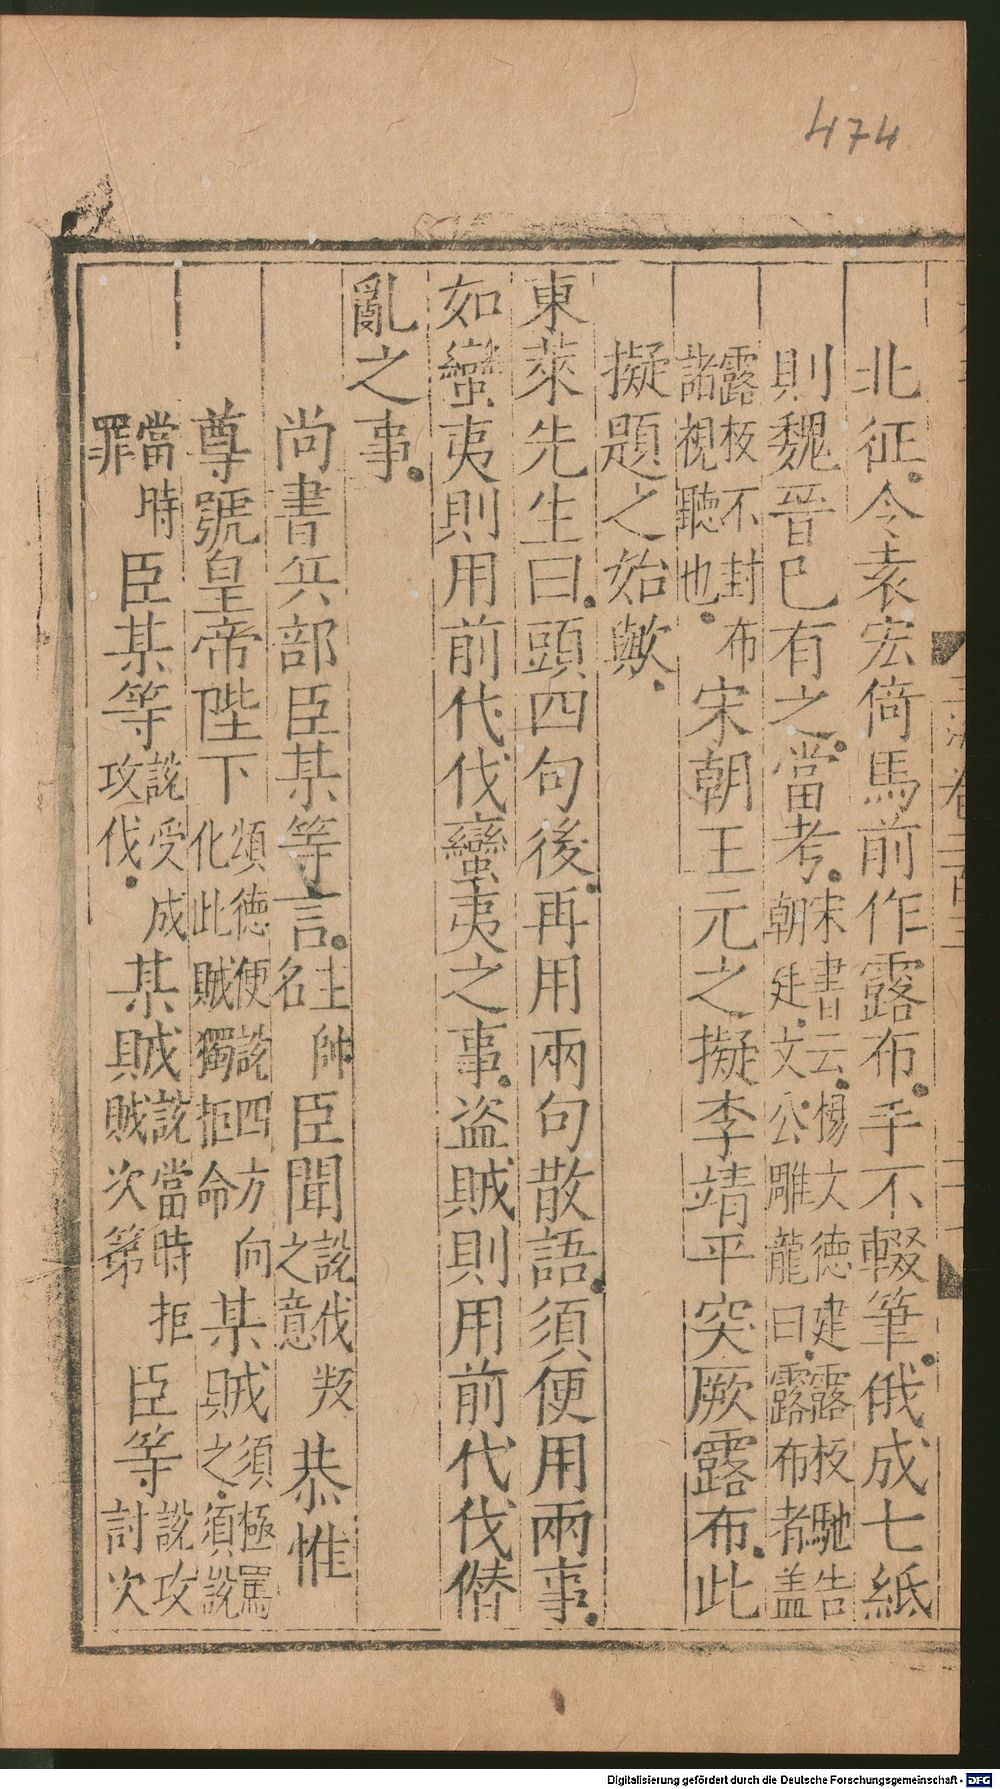 474
北征。令袁宏倚馬前作露布。手不輟筆。俄成七紙
則魏晉已有之。當考。宋書云。楊文德建露板馳告朝廷。文公雕龍曰。露布者盖
露板不封布諸視聽也。宋朝王元之擬李靖平突厥露布。此
擬題之始歟。
東萊先生曰。頭四句後。再用兩句散語。須便用兩事。
如蠻夷則用前代伐蠻夷之事。盜賊則用前代伐僭
亂之事。
尚書兵部臣某等言。主帥名臣聞說伐叛之意恭惟
尊號皇帝陛下頌德便說四方向化此賊獨拒命某賊須極罵之。須說
當時罪臣某等說受成攻伐。某賊說當時拒賊次第臣等說攻討次
Digitalisierung gefördert durch die Deutsche Forschungsgemeinschaft - DFG